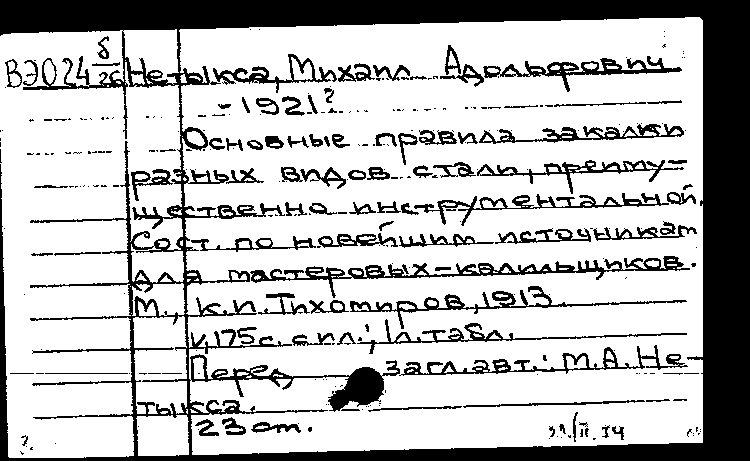 ВЭО24 б/26 Нетыкса, Михаил Адольфович
-1921?
Основные правила закалки
разных видов стали, преиму-
щественно инструментальной.
Сост. по новейшим источникам
для мастеровых-калильщиков.
М., К.И. Тихомиров, 1913.
V, 175 с. с ил.; 1 л. табл.
Перед загл. авт.: М.А. Не-
тыкса.
23 cm.